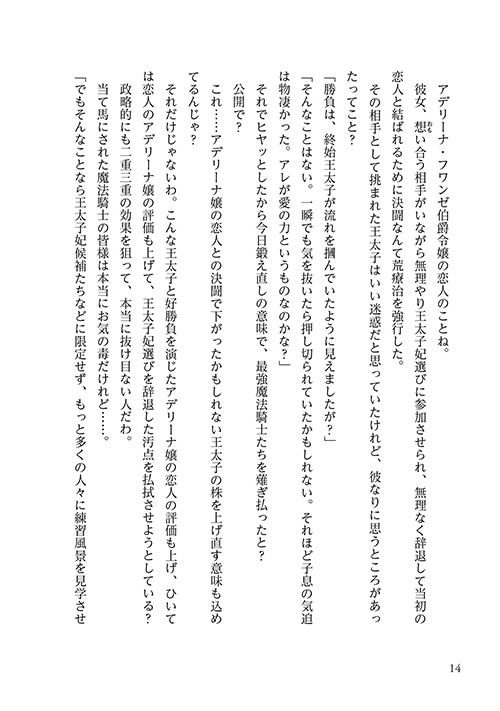 アデリーナ・フワンゼ伯爵令嬢の恋人のことね。
彼女、想い合う相手がいながら無理やり王太子妃選びに参加させられ、無理なく辞退して当初の
恋人と結ばれるために決闘なんて荒療治を強行した。
その相手として挑まれた王太子はいい迷惑だと思っていたけれど、彼なりに思うところがあっ
たってこと？
「勝負は、終始王太子が流れを摑んでいたように見えましたが？」
「そんなことはない。一瞬でも気を抜いたら押し切られていたかもしれない。それほど子息の気迫
は物凄かった。アレが愛の力というものなのかな？」
それでヒヤッとしたから今日鍛え直しの意味で、最強魔法騎士たちを薙ぎ払ったと？
公開で？
これ……アデリーナ嬢の恋人との決闘で下がったかもしれない王太子の株を上げ直す意味も込め
てるんじゃ？
それだけじゃないわ。こんな王太子と好勝負を演じたアデリーナ嬢の恋人の評価も上げ、ひいて
は恋人のアデリーナ嬢の評価も上げて、王太子妃選びを辞退した汚点を払拭させようとしている？
政略的にも二重三重の効果を狙って、本当に抜け目ない人だわ。
当て馬にされた魔法騎士の皆様は本当にお気の毒だけれど……。
「でもそんなことなら王太子妃候補たちなどに限定せず、もっと多くの人々に練習風景を見学させ
14